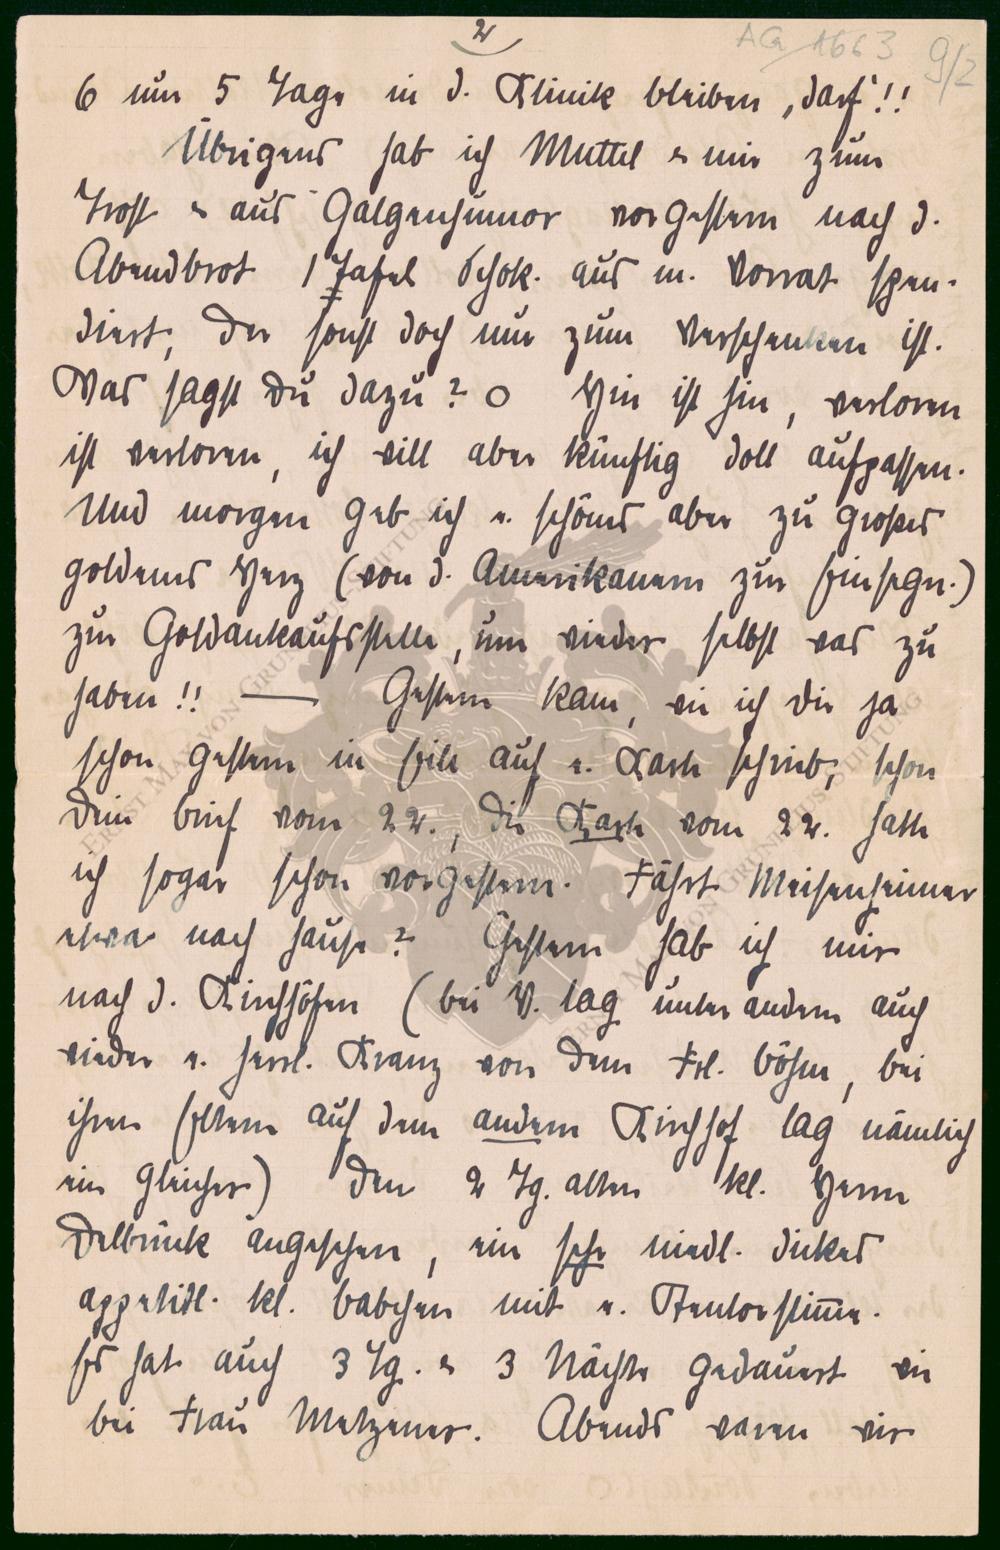 2
AG 1663 9/2
6 um 5 Tage in d. Klinik bleiben „darf“!!
Übrigens hab ich Muttel & mir zum
Trost & aus Galgenhumor vorgestern nach d.
Abendbrot 1 Tafel Schok. aus m. Vorrat spen-
diert, der sonst doch nur zum Verschenken ist.
Was sagst Du dazu? O Hin ist hin, verloren
ist verloren, ich will aber künftig doll aufpassen.
Und morgen geb ich e. schönes aber zu großes
goldenes Herz (von d. Amerikanern zur Einsegn.)
zur Goldankaufsstelle, um wieder selbst was zu
haben!! — Gestern kam, wie ich Dir ja
schon gestern in Eile auf e. Karte schrieb, schon
Dein Brief vom 22., die Karte vom 22. hatte
ich sogar schon vorgestern. Fährt Meisenheimer
etwa nach Hause? Gestern hab ich mir
nach d. Kirchhöfen (bei V. lag unter andern auch
wieder e. herrl. Kranz von dem Frl. Böhm, bei
ihren Eltern auf dem andern Kirchhof lag nämlich
ein gleicher) den 2 Tg. alten kl. Herrn
Delbrück angesehen, ein sehr niedl. dickes
appetitl. kl. Babchen mit e. Stentorstimme.
Es hat auch 3 Tg. & 3 Nächte gedauert wie
bei Frau Metzener. Abends waren wir
ERNST MAX VON GRUNELIUS-STIFTUNG
ERNST MAX VON GRUNELIUS-STIFTUNG